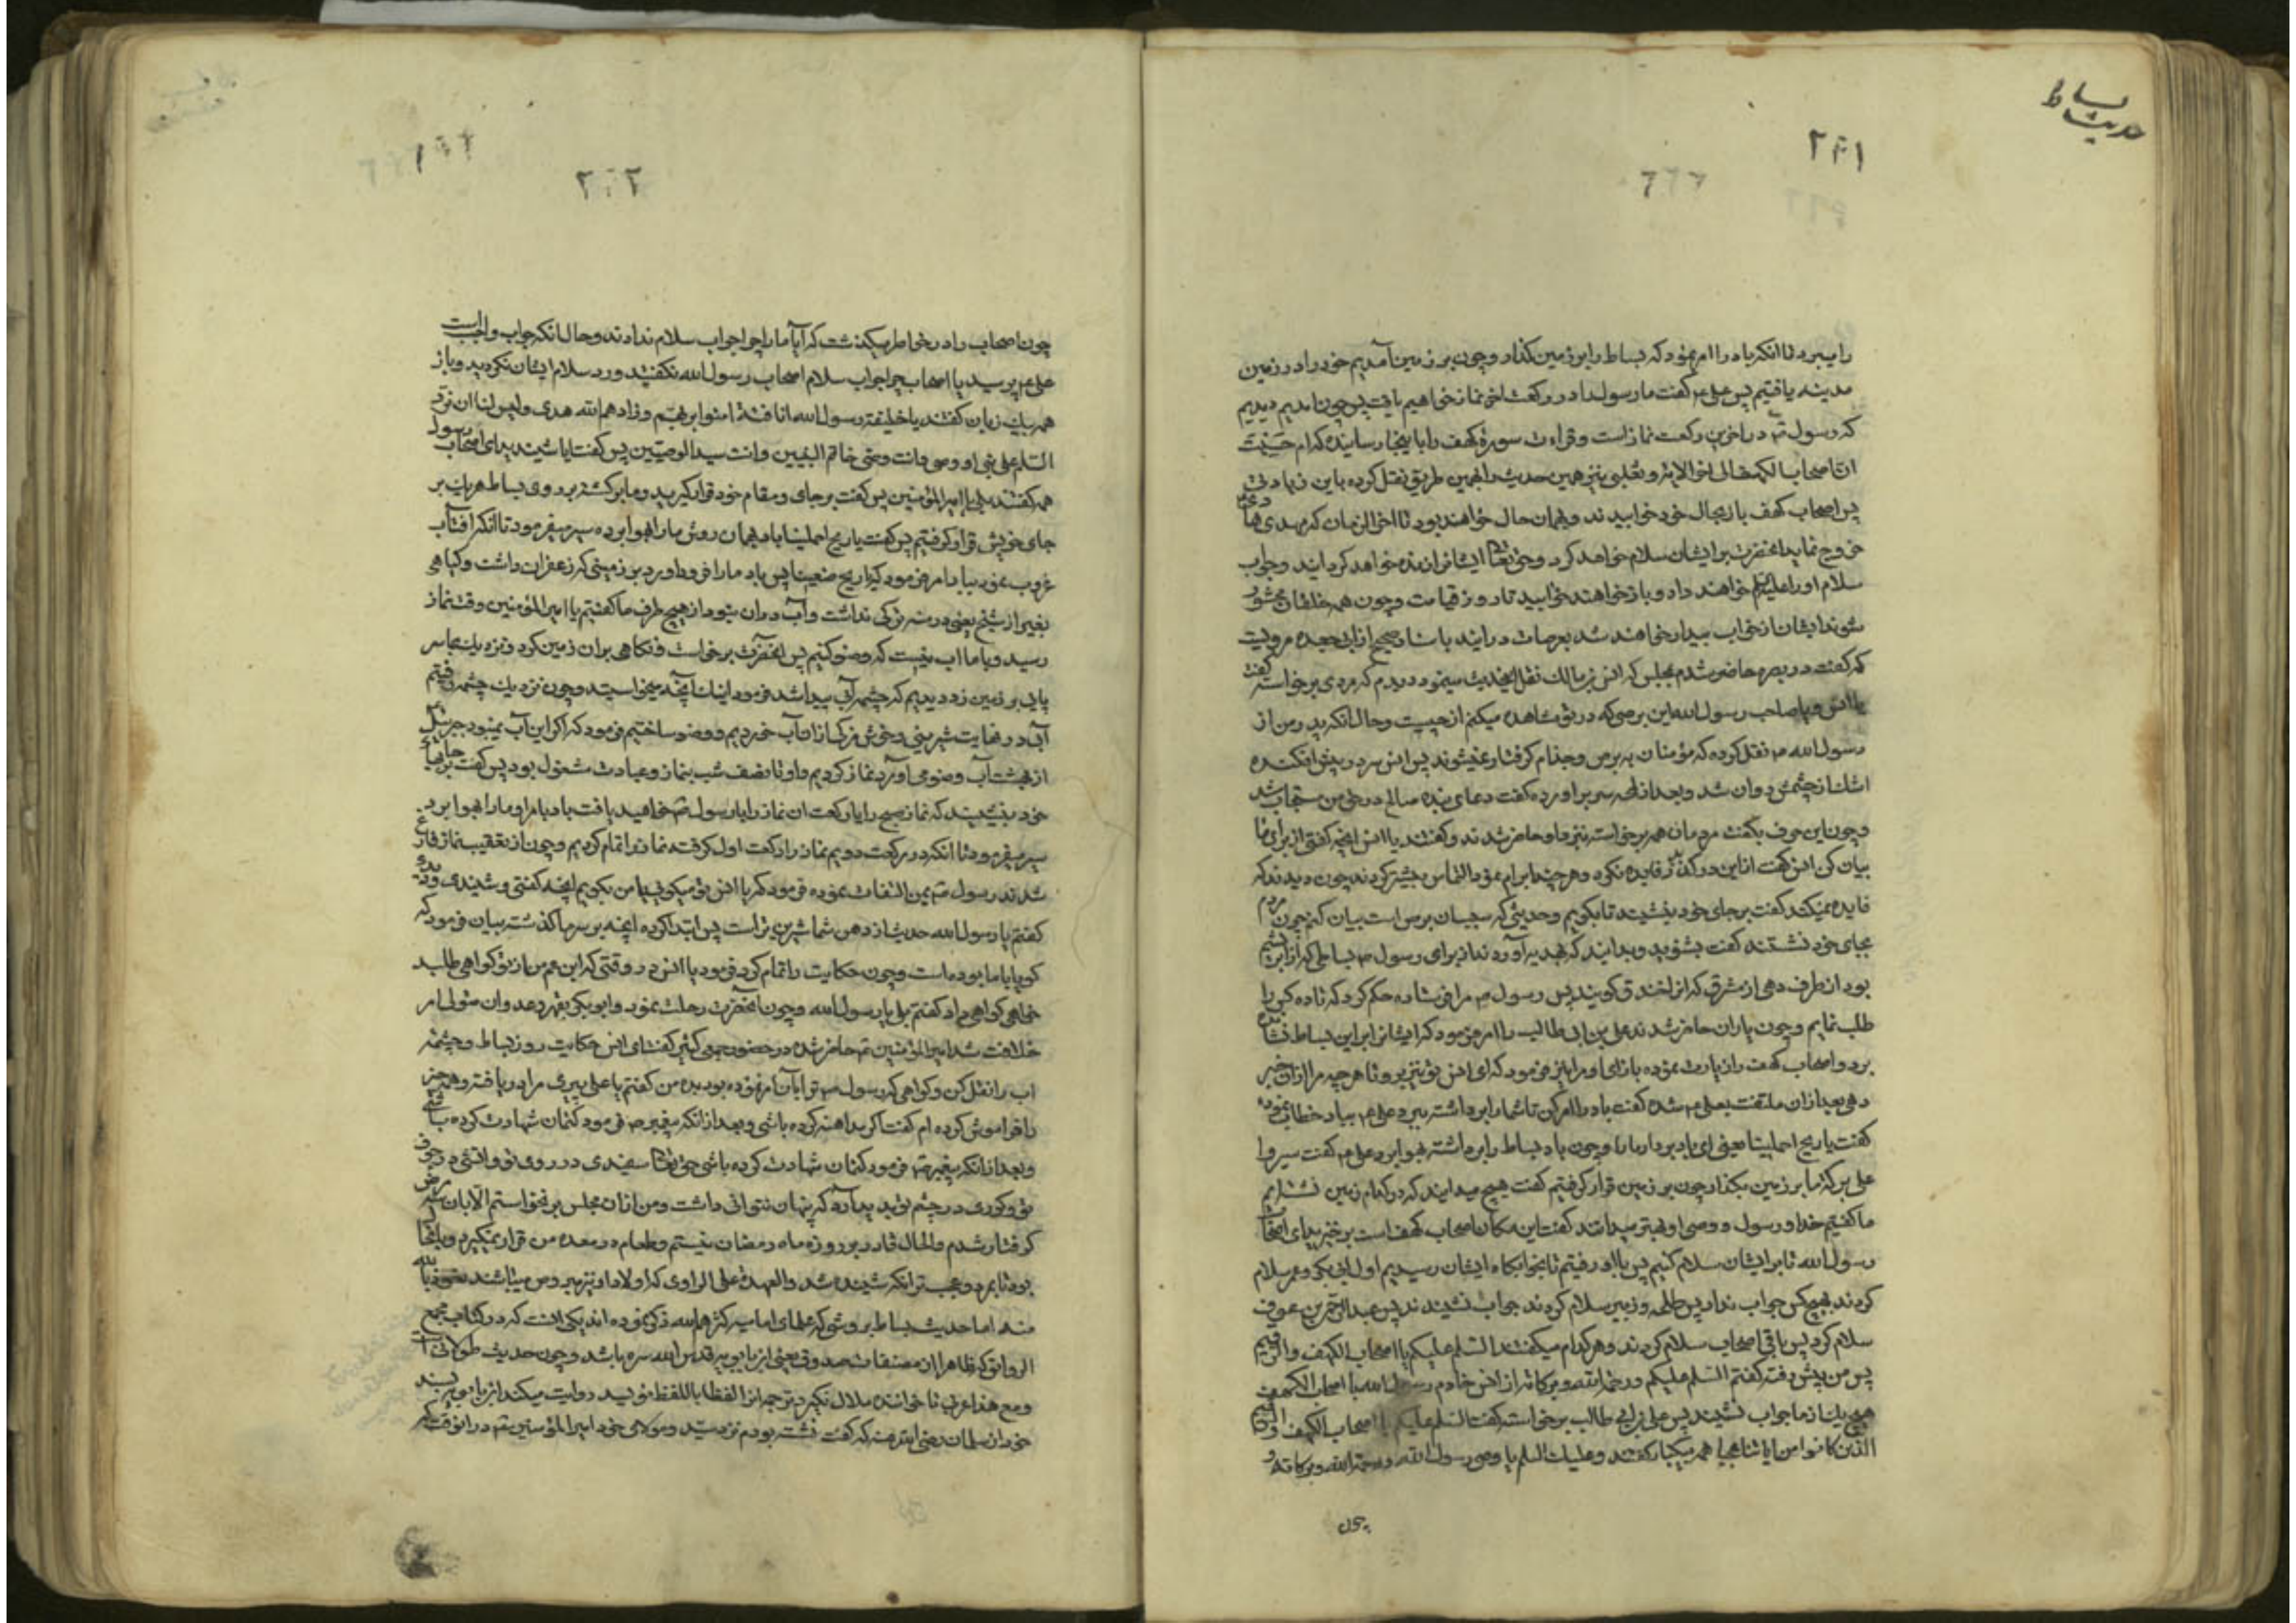 حدیث بساط
۲۰۱
را میبرد تا انکه باد را امر نمود که بساط را بر زمین گذار و چون بر زمین آمدیم خود را در زمین
مدینه یافتیم پس علی ع گفت ما رسول را در رکعت اخر نماز خواهیم یافت پس چون امدیم دیدیم
که رسول در اخرین رکعت نماز است و قراءت سورهٔ کهف را باینجا رسانیده که ام حسبت
ان اصحاب الکهف الی اخر الایه و ثعلبی نیز همین حدیث را بهمین طریق نقل کرده باین زیادتی
پس اصحاب کهف باز بحال خود خوابیدند و بهمان حال خواهند بود تا اخر الزمان که مهدی هادی
خروج نماید انحضرت بر ایشان سلام خواهد کرد و حق تعا ایشانرا زنده خواهد کردانید و جواب
سلام او را علیه السلام خواهند داد و باز خواهند خوابید تا روز قیامت و چون همه خلقان محشور
شوند ایشان از خواب بیدار خواهند شد بعرصات درایند باسناد صحیح از ابی جعده مرویست
که گفت در بصره حاضر شدم بمجلس که انس بن مالک نقل الحدیث مینمود دیدم که مردی برخواسته گفت
یا انس و یا صاحب رسول الله این برصی که در تو مشاهده میکنم از چیست و حال انکه پدر من از
رسول الله ص نقل کرده که مؤمنان به برص و جذام گرفتار نمیشوند پس انس سر در پیش افکنده
اشک از چشمش روان شد و بعد از لمحه سر براورده گفت دعای بنده صالح در حق من مستجاب شد
و چون این حرف بگفت مردمان همه برخواسته بنزد او حاضر شدند و گفتند یا انس انچه گفتی از برای ما
بیان کن انس گفت از این درگذر فایده نکرد و هر چند ابرام نمود التماس بیشتر کردند چون دیدند که
فایده نمیکند گفت بر جای خود بنشینید تا بگویم و حدیثی که سبب ان برص است بیان کنم چون مردم
بجای خود نشستند گفت بشنوید و بدانید که بهدیه آوردند از برای رسول ص بساطی که از ابریشم
بود از طرف دهی از مشرق که انرا خندق گویند پس رسول ص مرا فرستاده حکم کرد که تا ده کس را
طلب نمایم و چون یاران حاضر شدند علی بن ابی طالب را امر فرمود که ایشانرا بر این بساط نشانده
برد و اصحاب کهف را زیارت نموده باز ای و مرا نیز فرمود که ای انس تو نیز برو تا هر چه مرا از ان خبر
دهی بعد ازان ملتفت بعلی ع شده گفت باد را امر کن تا شما را برداشته ببرد علی ع بباد خطاب نموده
گفت یا ریح احملینا یعنی ای باد بردار ما را و چون باد بساط را برداشته بهوا برد علی ع گفت سیروا
علی برکة ما بر زمین بگذار چون بر زمین قرار گرفتیم گفت هیچ میدانید که در کدام زمین نشسته ایم
ما گفتیم خدا و رسول و وصی او بهتر میدانند گفت این مکان اصحاب کهف است برخیزید ای اصحاب
رسول الله تا بر ایشان سلام کنیم پس با او رفتیم تا بخوابگاه ایشان رسیدیم اول ابی بکر و عمر سلام
کردند هیچکس جواب نداد پس طلحه و زبیر سلام کردند جواب نشنیدند پس عبدالرحمن بن عوف
سلام کرد پس باقی اصحاب سلام کردند و هر کدام میگفتند السلم علیکم یا اصحاب الکهف والرقیم
پس من پیش رفته گفتم السلم علیکم و رحمة الله و برکاته از انس خادم رسول الله یا اصحاب الکهف
هیچ یک از ما جواب نشنید پس علی بن ابی طالب برخواسته گفت السلم علیکم یا اصحاب الکهف والرقیم
الذین کانوا من ایاتنا عجبا همه بیکبار گفتند و علیک السلم یا وصی رسول الله و رحمة الله و برکاته و
چون
۲۰۲
چون اصحاب را در خاطر میگذشت که آیا ما را چرا جواب سلام ندادند و حال انکه جواب واجب است
علی ع پرسید یا اصحاب چرا جواب سلام اصحاب رسول الله نگفتید و رد سلام ایشان نکردید و باز
همه بیک زبان گفتند یا خلیفة رسول الله انا فتیة امنوا بربهم و زادهم الله هدی و لیس لنا ان نرد
السلم علی نبی او وصی و انت وصی خاتم النبیین و انت سید الوصیین پس گفت ایا شنیدید ای اصحاب رسول
همه گفتند بلی یا امیر المؤمنین پس گفت بر جای و مقام خود قرار گیرید و ما برگشته بر روی بساط هر یک بر
جای خویش قرار گرفتیم پس گفت یا ریح احملینا باد بهمان روش ما را بهوا برده سیر میفرمود تا انکه افتاب
غروب نمود بباد امر فرمود که یا ریح ضعینا پس باد ما را فرود اورد بر زمینی که زعفران داشت و گیاهی
بغیر از شیح یعنی درمنه ترکی نداشت و آب دران نبود از هیچ طرف ما گفتیم یا امیر المؤمنین وقت نماز
رسید و با ما اب نیست که وضو کنیم پس انحضرت برخواست و نگاهی بران زمین کرد و نزدیک بما سر
پایی بر زمین زد دیدیم که چشمه آبی پیدا شد فرمود اینک آنچه میخواستید و چون نزدیک چشمه رفتیم
آب در نهایت شیرینی و خوش مزگی ازان آب خوردیم و وضو ساختیم فرمود که اگر این آب نمیبود جبرئیل
از بهشت آب وضو می آورد نماز کردیم و او تا نصف شب بنماز و عبادت مشغول بود پس گفت بر جایهای
خود بنشینید که نماز صبح را یا رکعت ان نماز را با رسول ص خواهید یافت باد بامر او ما را بهوا برد
سیر میفرمود تا انکه در رکعت دویم نماز را رکعت اول گرفته نماز را تمام کردیم و چون از تعقیب نماز فارغ
شدند رسول ص بمن التفات نموده فرمود که یا انس تو میگویی یا من بگویم انچه گفتی و شنیدی و دیدی
گفتم یا رسول الله حدیث از دهن شما شیرین تر است پس ابتدا کرده انچه بر سر ما گذشته بیان فرمود که
گویا با ما بوده است و چون حکایت را تمام کرد فرمود یا انس در وقتی که ابن عم من از تو گواهی طلبد
خواهی گواهی داد گفتم بلی یا رسول الله و چون انحضرت رحلت نمود و ابو بکر بقهر و عدوان متولی امر
خلافت شد امیر المؤمنین ع حاضر شده در حضور جمعی کثیر گفت ای انس حکایت روز بساط و چشمه
اب را نقل کن و گواهی که رسول ص ترا بان امر نموده بود بده من گفتم یا علی پیری مرا دریافته و همه چیز
را فراموش کرده ام گفت اگر مداهنه کرده باشی و بعد از انکه پیغمبر ص فرمود کتمان شهادت کرده باشی
و بعد از انکه پیغمبر ص فرمود کتمان شهادت کرده باشی حق تعا سفیدی در روی تو و اتشی در جوف
تو و کوری در چشم تو پدید آرد که پنهان نتوانی داشت و من ازان مجلس برنخواستم الا بان سه مرض
گرفتار شدم و الحال قادر بر روزه ماه رمضان نیستم و طعام در معده من قرار نمیگیرد و بانها
بود تا بمرد و عجب تر انکه شنیده شد والعهدة علی الراوی که اولاد او نیز مبروص میباشند نعوذ بالله
منه اما حدیث بساط بروشی که علمای امامیه کثرهم الله ذکر نموده اند یکی انست که در کتاب مجمع
الروایق که ظاهرا از مصنفات صدوق یعنی ابن بابویه قدس الله سره باشد و چون حدیث طولانی است
و مع هذا عربی تا خواننده ملال نگیرد ترجمه انرا لفظا باللفظ مؤید روایت میکند ابن بابویه بسند
خود از سلمان رضی الله عنه که گفت نشسته بودم نزد سید و مولای خود امیر المؤمنین ع در انوقت که